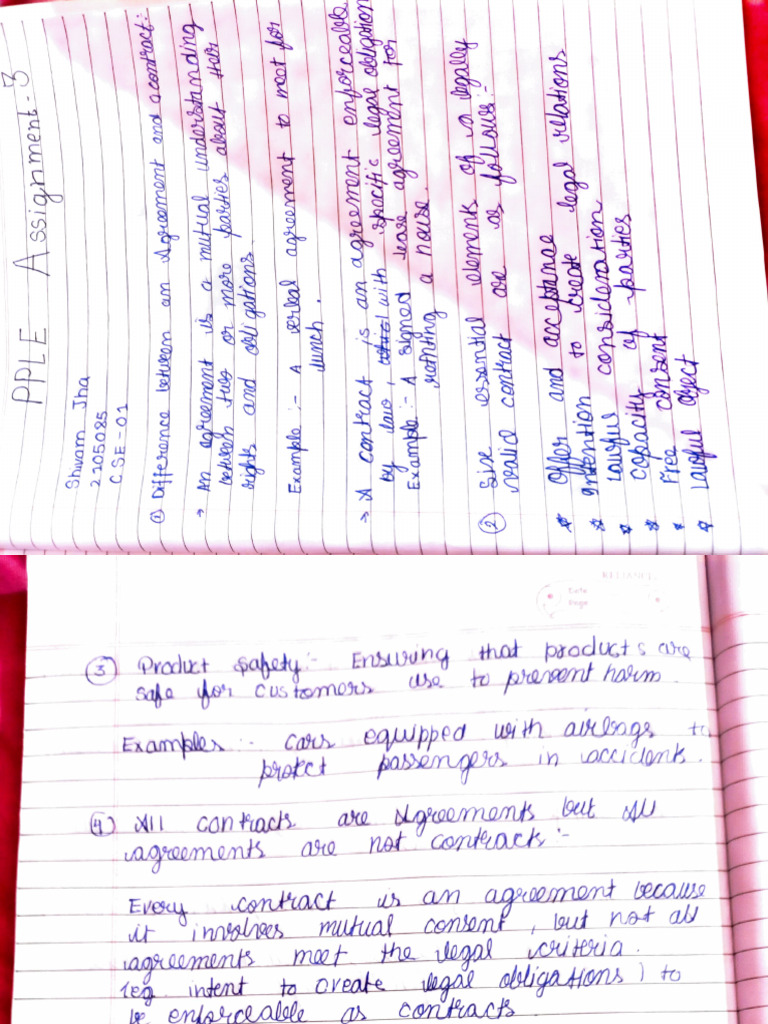 PPLE Assignment-3
Shivam Jha
2205085
CSE-01
① Difference between an Agreement and a contract:
→ An agreement is a mutual understanding
between two or more parties about their
rights and obligations.
Example :- A verbal agreement to meet for
lunch.
→ A contract is an agreement enforceable
by law, with specific legal obligation
Example :- A signed lease agreement for
renting a house.
② Six essential elements of a legally
valid contract are as follows:-
☆ Offer and acceptance
☆ Intention to create legal relations
☆ Lawful consideration
☆ Capacity of parties
☆ Free consent
☆ Lawful object
RELIANCE
Date
Page
③ Product Safety:- Ensuring that products are
safe for customers use to prevent harm.
Examples :- cars equipped with airbags to
protect passengers in accidents.
④ All contracts are Agreements but All
agreements are not contracts:-
Every contract is an agreement because
it involves mutual consent, but not all
agreements meet the legal criteria.
(eg intent to create legal obligations) to
be enforceable as contracts